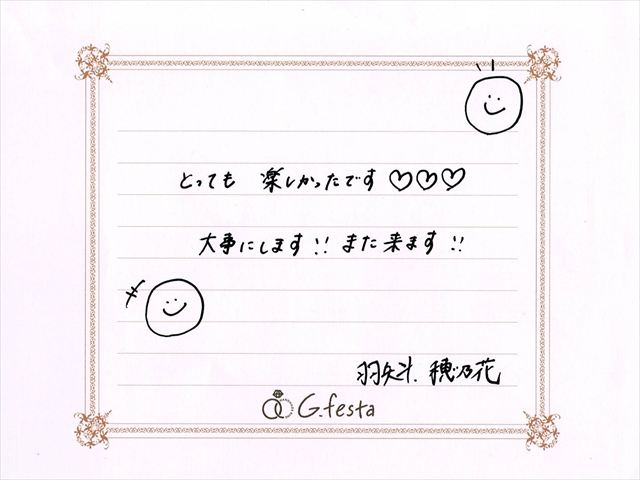 とっても 楽しかったです♡♡♡
大事にします!! また来ます!!
羽矢斗. 穂乃花
G.festa